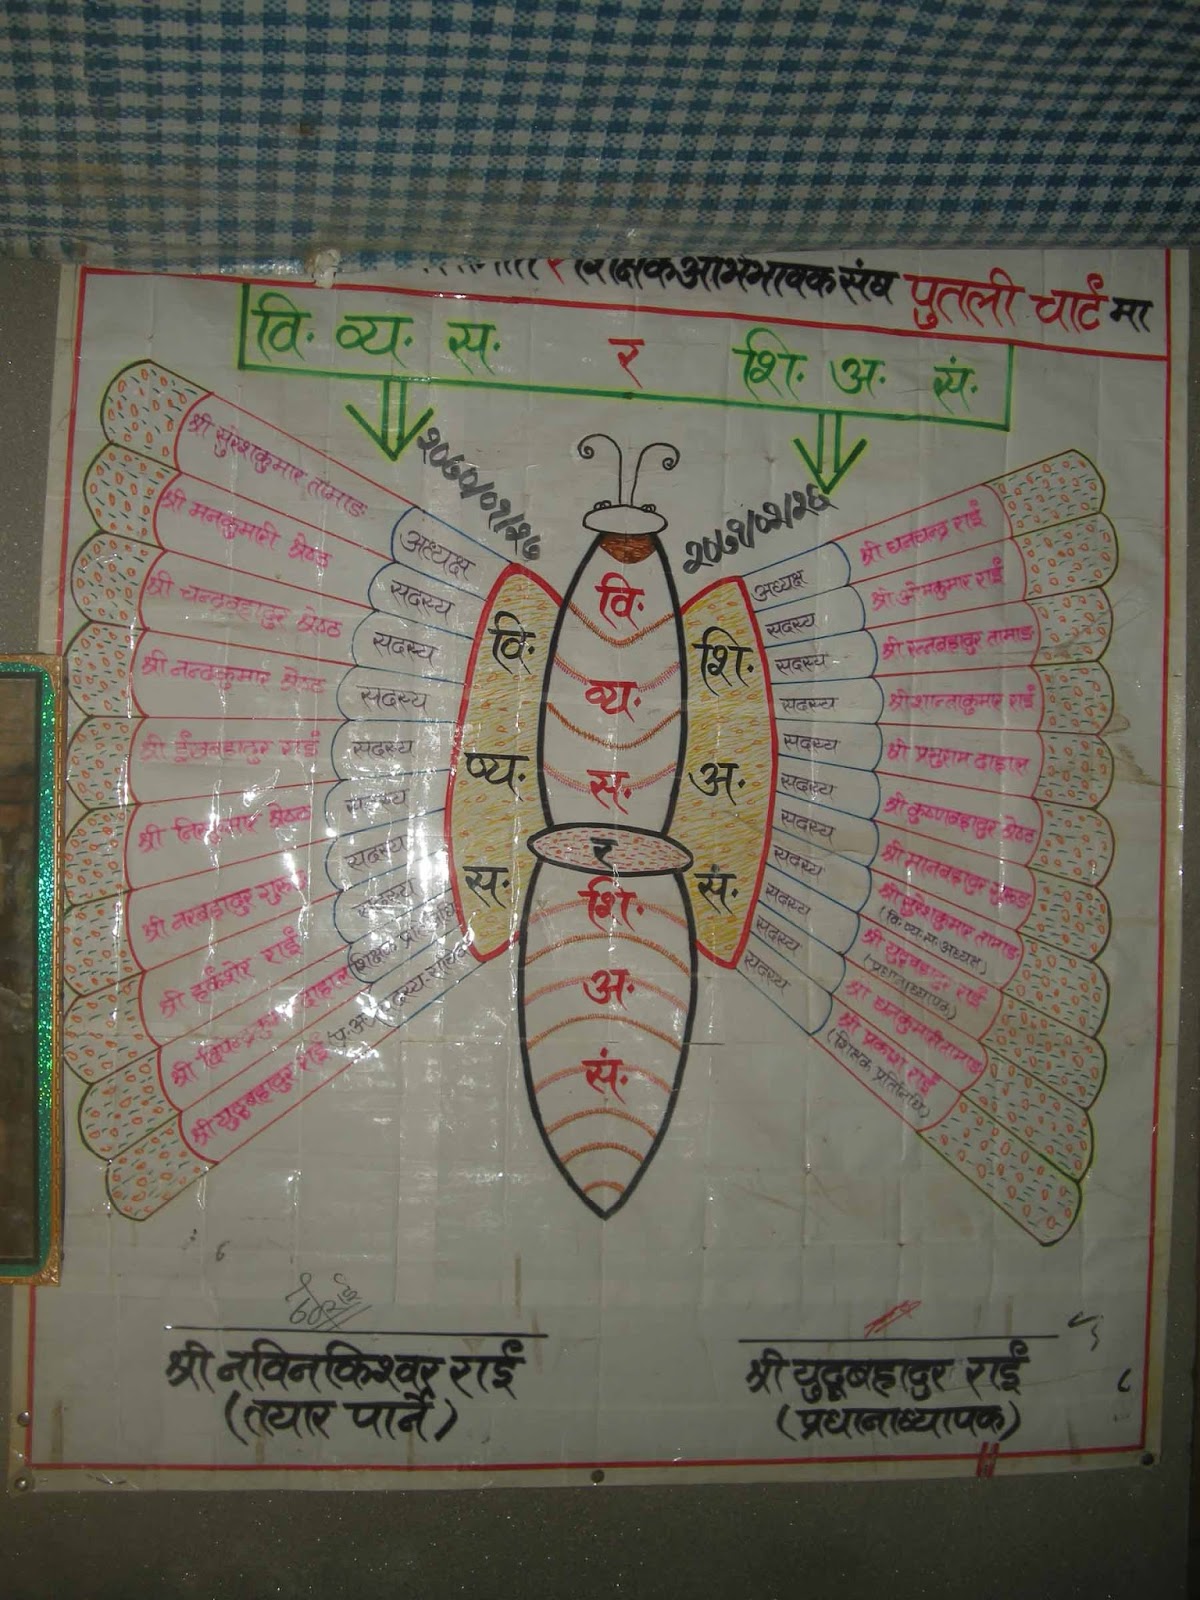 र शिक्षक अभिभावक संघ पुतली चार्ट मा
वि. व्य. स. र शि. अ. सं.
२०७०/०१/२७
२०७१/०२/२६
श्री सुरेशकुमार तामाङ अध्यक्ष
श्री मनकुमारी श्रेष्ठ सदस्य
श्री चन्द्रबहादुर श्रेष्ठ सदस्य
श्री नन्दकुमार श्रेष्ठ सदस्य
श्री राई सदस्य
श्री श्रेष्ठ सदस्य
श्री नरबहादुर गुरुङ सदस्य
श्री हर्कशेर राई सदस्य
श्री दाहाल
श्री युद्धबहादुर राई
वि.
ष्य.
स.
वि.
व्य.
स.
र
शि.
अ.
सं.
शि.
अ.
सं.
अध्यक्ष श्री धनचन्द्र राई
सदस्य श्री ओमकुमार राई
सदस्य श्री रत्नबहादुर तामाङ
सदस्य श्री शान्ताकुमार राई
सदस्य श्री प्रभुराम दाहाल
सदस्य श्री कृष्णबहादुर श्रेष्ठ
सदस्य श्री मानबहादुर गुरुङ
सदस्य श्री सुरेशकुमार तामाङ
(वि.व्य.स. अध्यक्ष)
सदस्य श्री युद्धबहादुर राई
(प्रधानाध्यापक)
सदस्य श्री धनकुमारी तामाङ
सदस्य श्री प्रकाश राई
(शिक्षक प्रतिनिधि)
श्री नविनकिश्वर राई
(तयार पार्ने)
श्री युद्धबहादुर राई
(प्रधानाध्यापक)